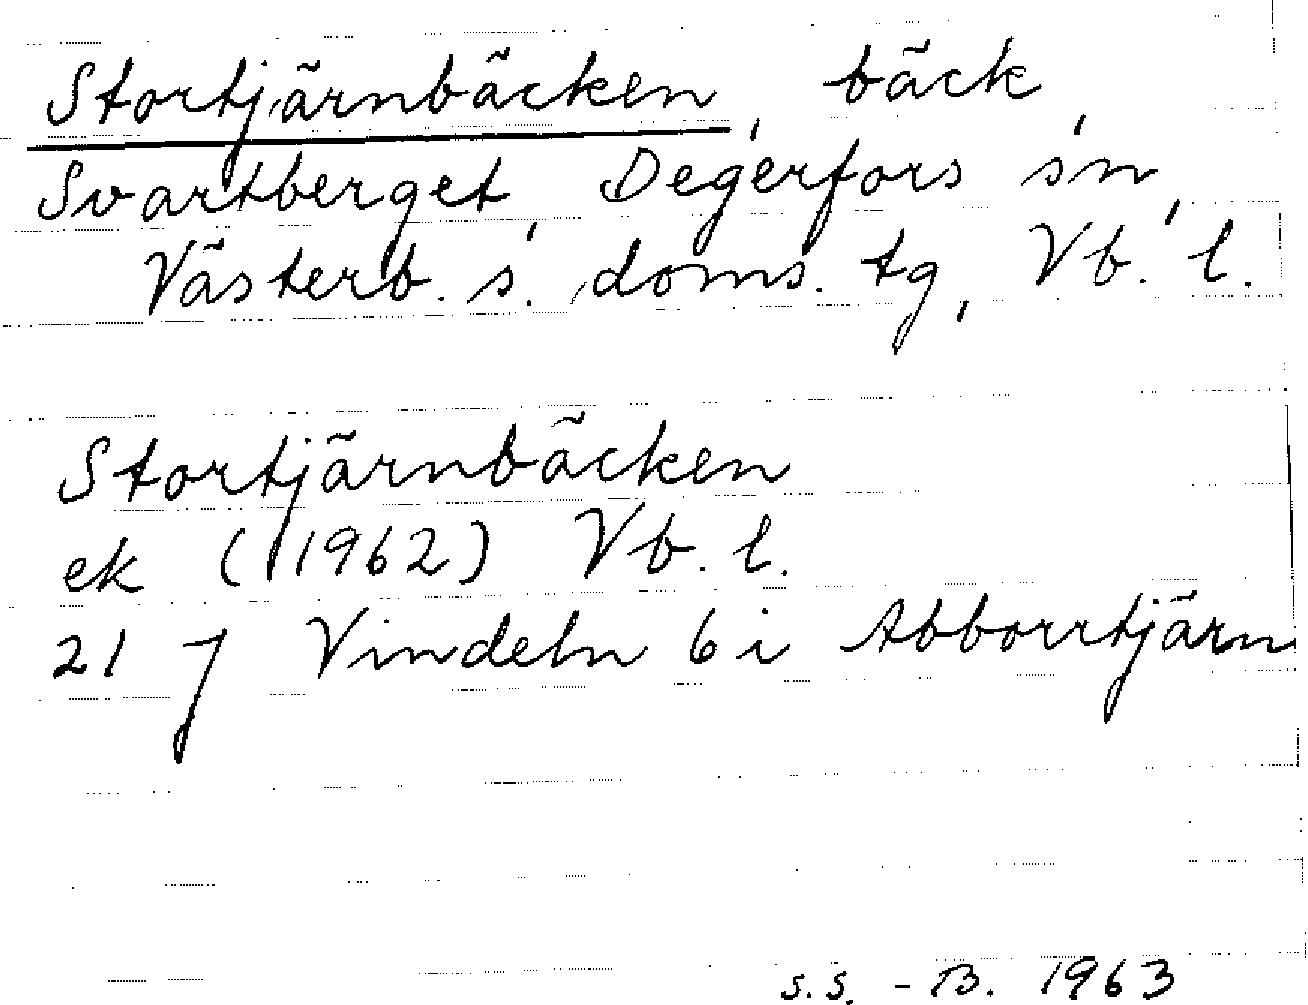 Stortjärnbäcken, bäck,
Svartberget, Degerfors sn,
Västerb. s. doms. tg, Vb. l.
Stortjärnbäcken
ek (1962) Vb. l.
21 J Vindeln 6 i Abborrtjärn
S.S. - B. 1963